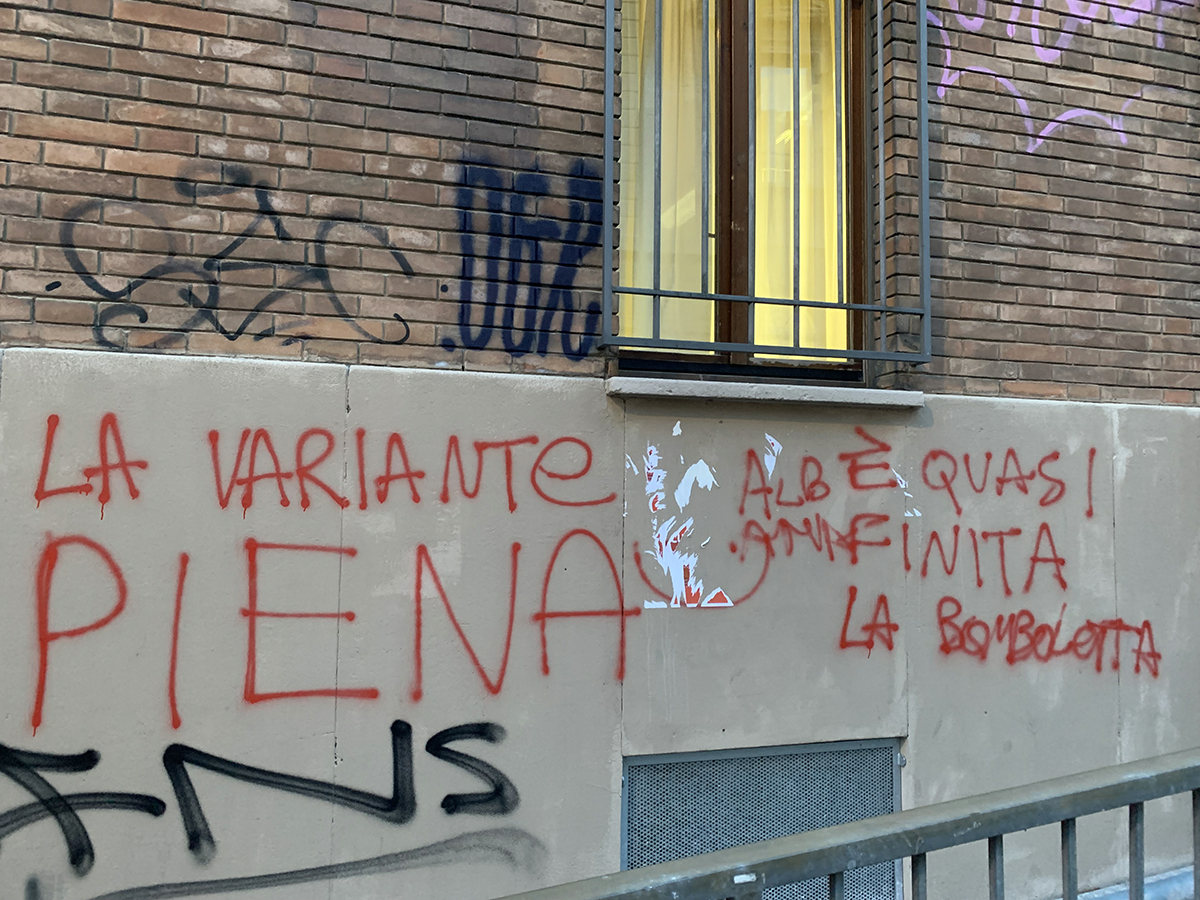 LA VARIANTE
PIENA
ALB È QUASI
FINITA
LA BOMBOLETTA